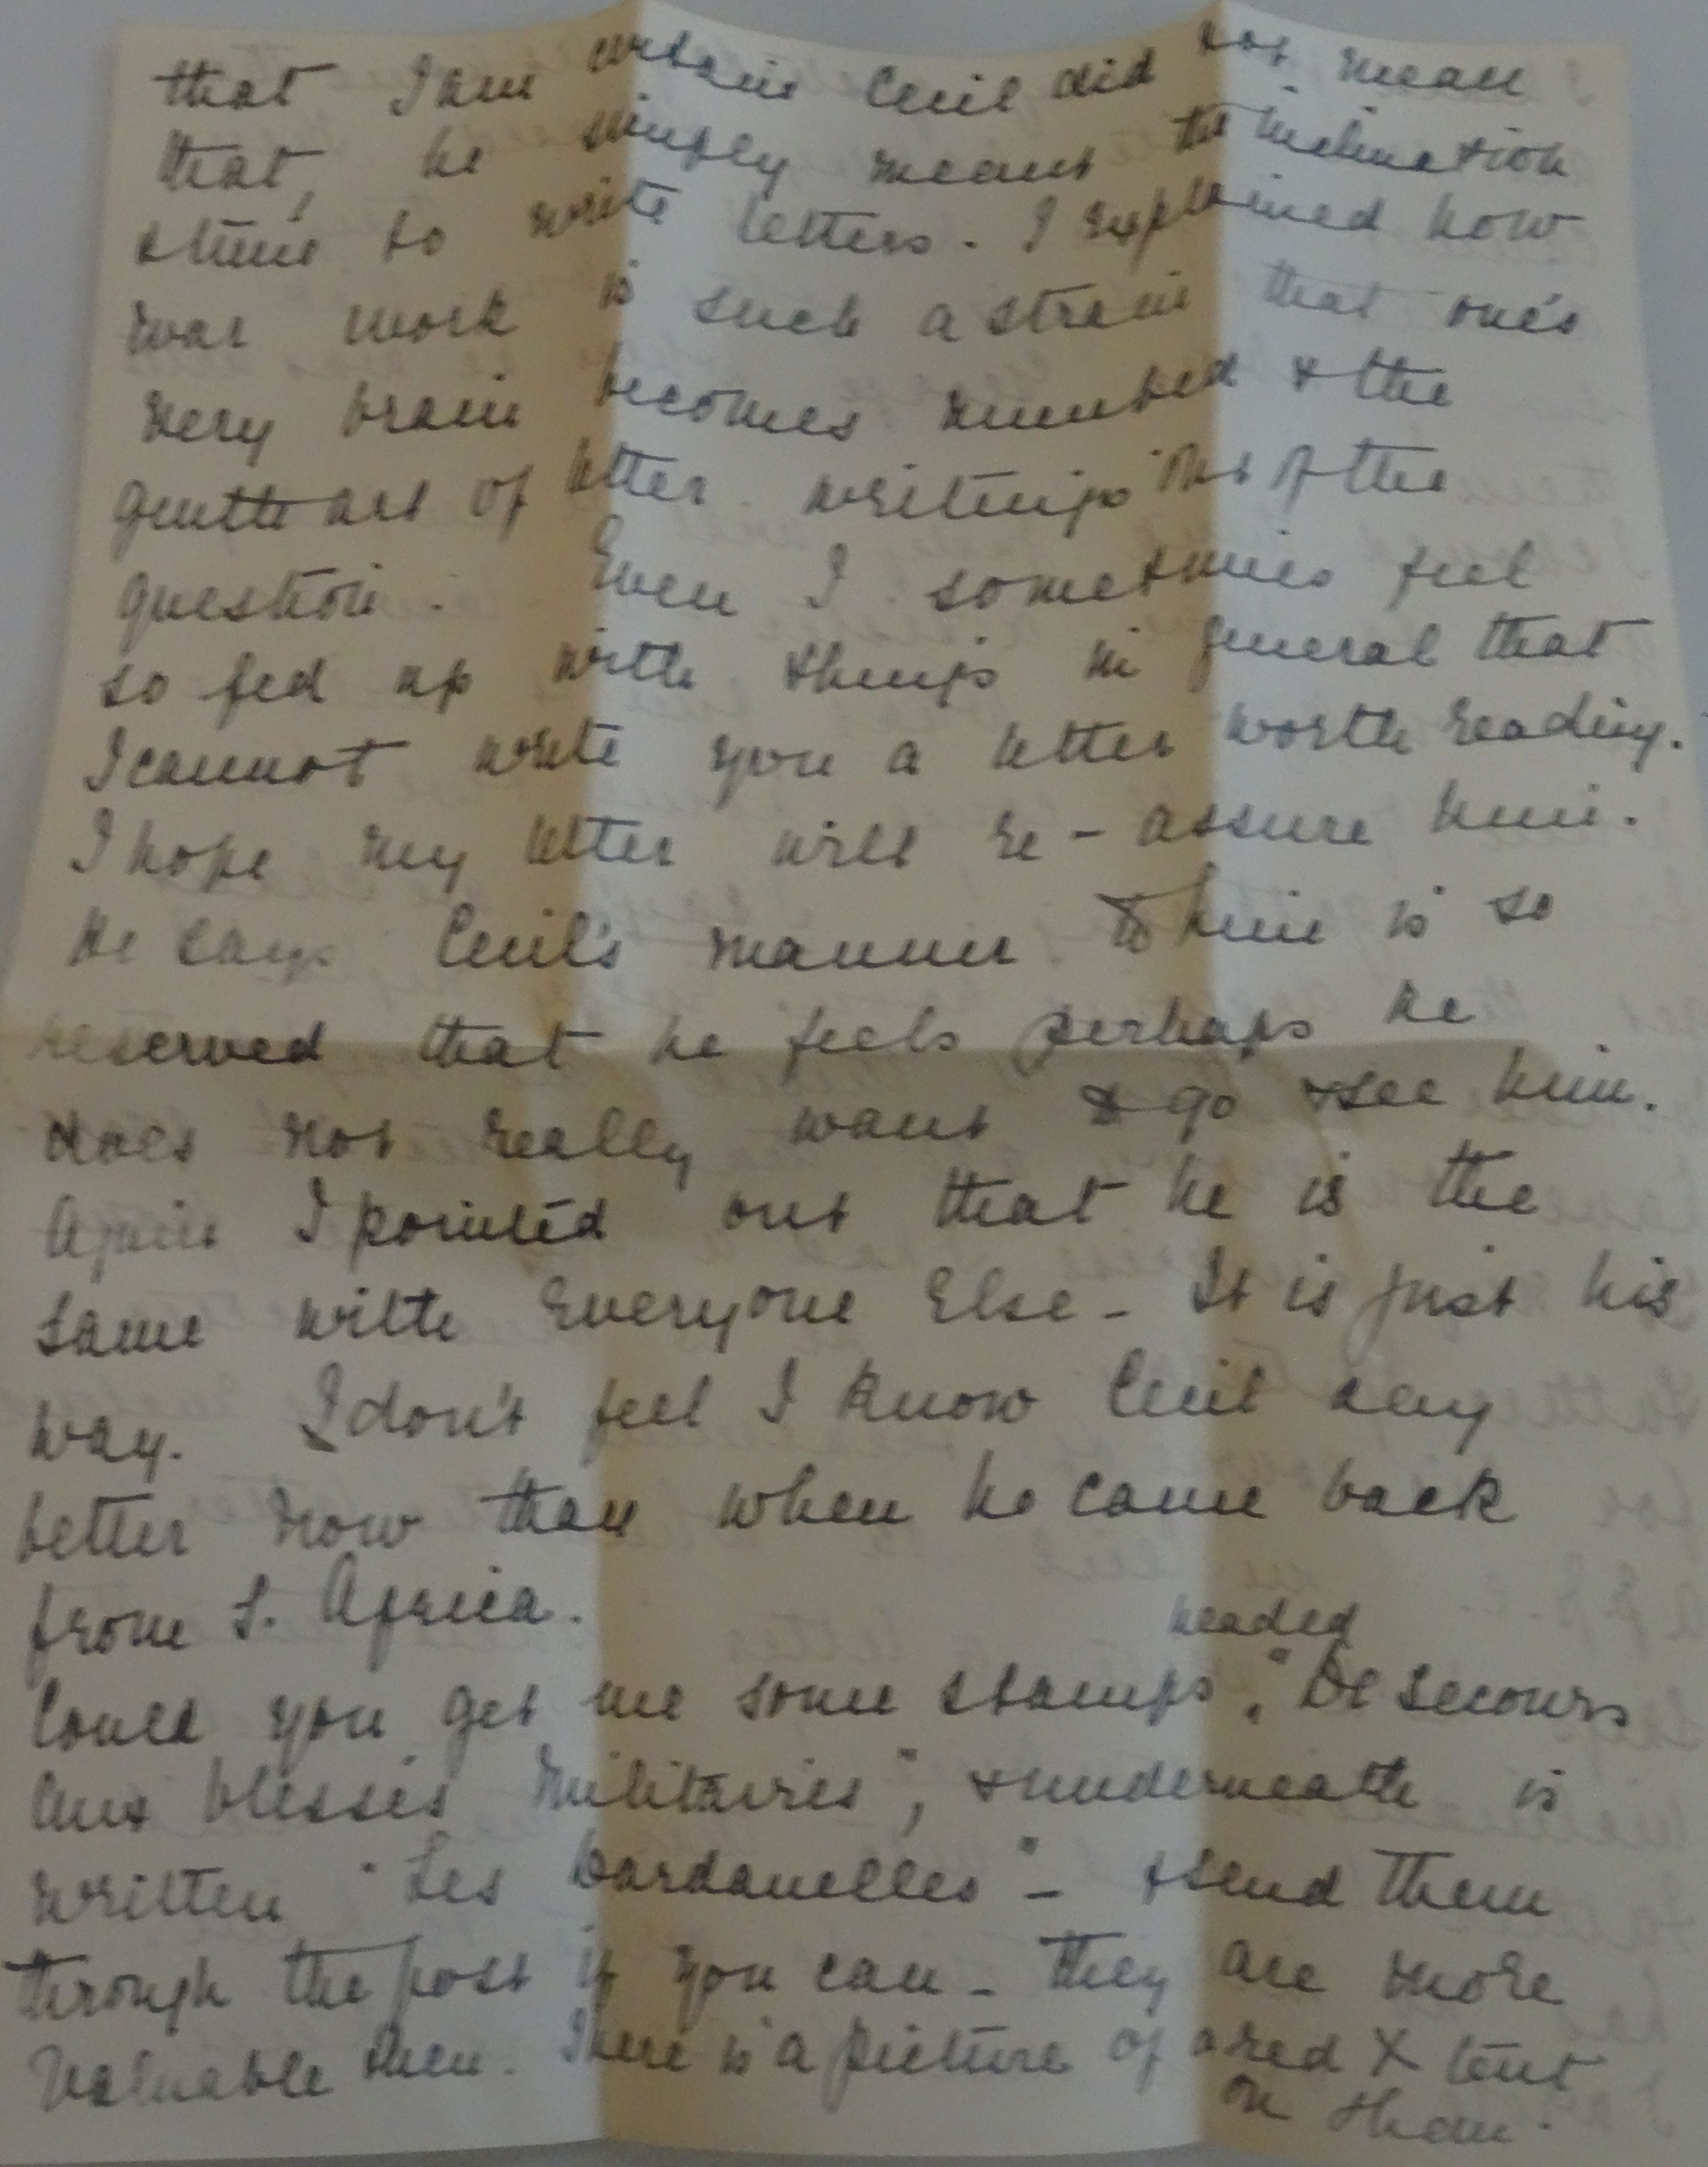 that I am certain Cecil did not mean
that, he simply meant the inclination
& time to write letters. I explained how
war work is such a strain that one's
very brain becomes numbed & the
gentle art of letter writing is out of the
question. Even I sometimes feel
so fed up with things in general that
I cannot write you a letter worth reading.
I hope my letter will re-assure him.
He says Cecil's manner to him is so
reserved that he feels perhaps he
does not really want to go & see him.
Again I pointed out that he is the
same with everyone else - It is just his
way. I don't feel I know Cecil any
better now than when he came back
from S. Africa.
headed
Could you get me some stamps, "De Secours
aux blessés Militaires", & underneath is
written "Les Dardanelles" - & send them
through the post if you can - they are more
valuable then. There is a picture of a red X tent
on them.